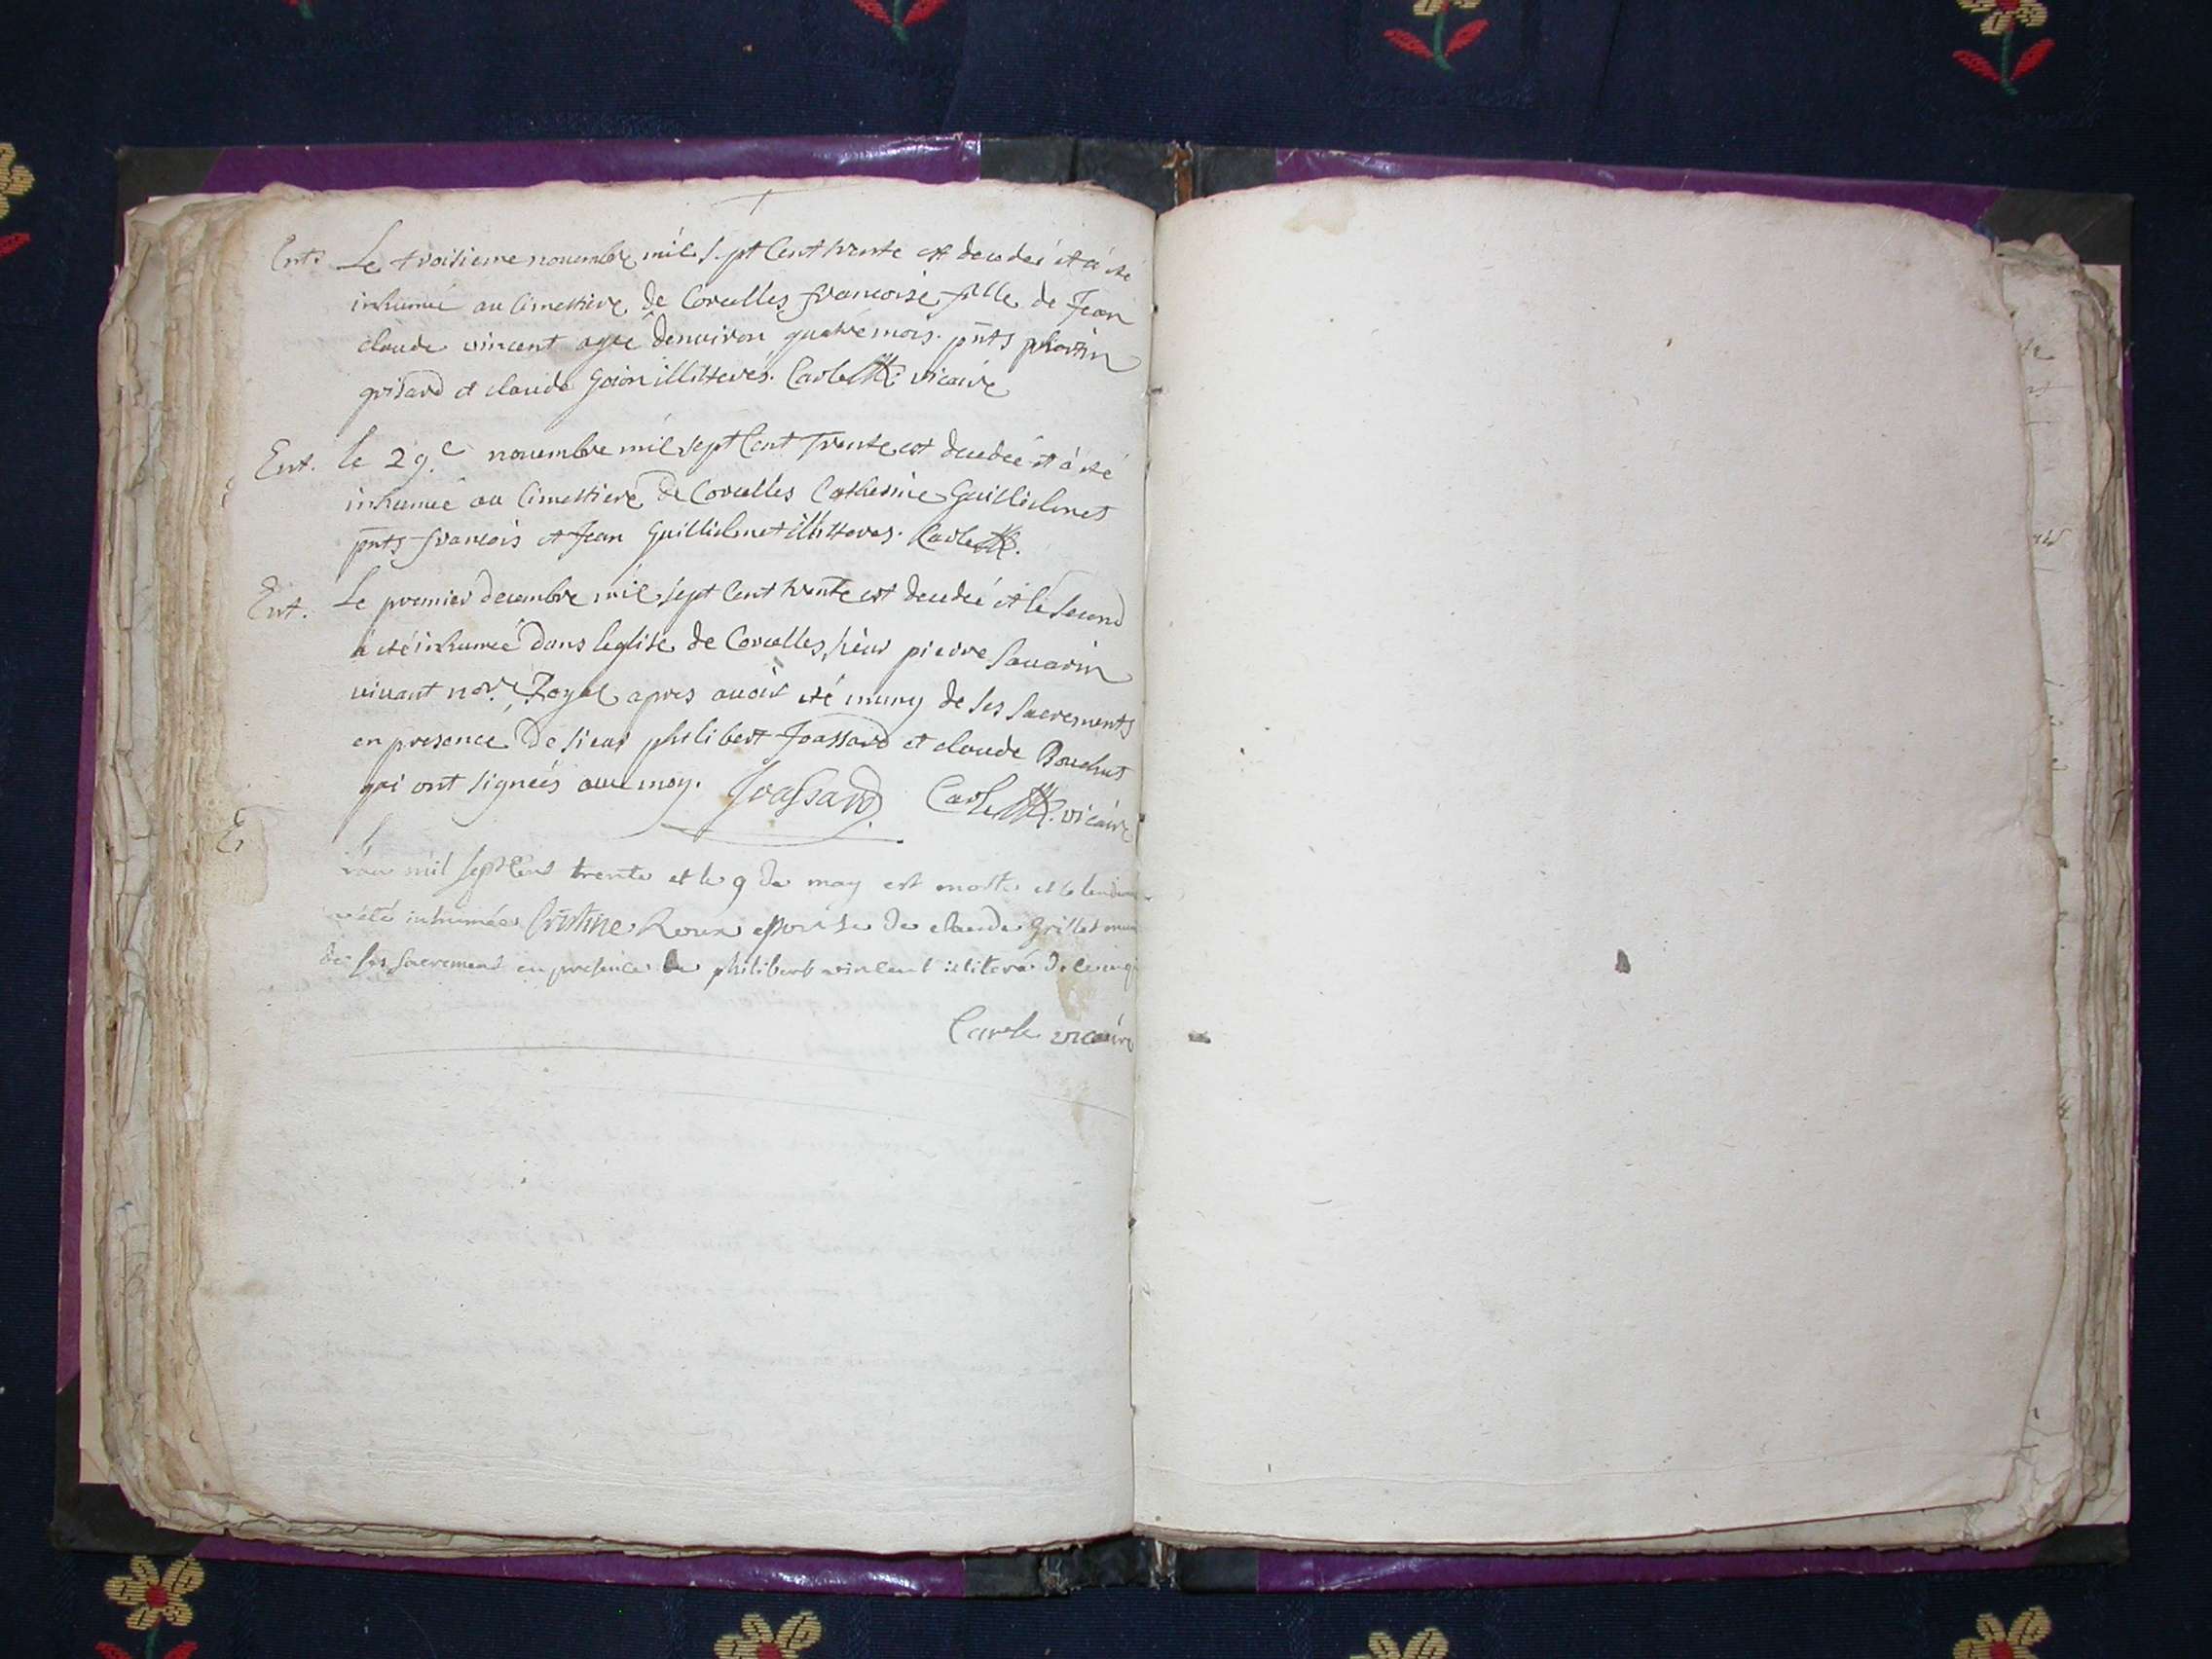 Ent. Le troisieme novembre mil sept Cent trente est decedeé et a eté
inhumeé au Cimettiere de Corcelles francoise fille de Jean
claude vincent ageé denuiron quatre mois. pnts
grisard et claude illitteres. Carle vicaire
Ent. le 29.e novembre mil sept Cent Trente est decedeé et a eté
inhumeé au Cimettiere de Corcelles Catherine Guillielmet
pnts francois et Jean Guillielmet illitteres. Carle
Ent. Le premier decembre mil sept Cent trente est decedeé et le second
a eté inhumeé dans leglise de Corcelles sieur pierre Sauarin
viuant nore. Royal apres auoir eté muny de ses sacrements
en presence de sieur philibert Joassard et claude Bouchut
qui ont signeés auec moy. Joassard Carle vicaire
E
Lan mil sept Cent trente et le 9 de may est morte et le
a été inhumée Cristine Roux epouse de claude Grillet
de ses sacremens en presence de philibert vincent illiteré de ce
Carle vicaire